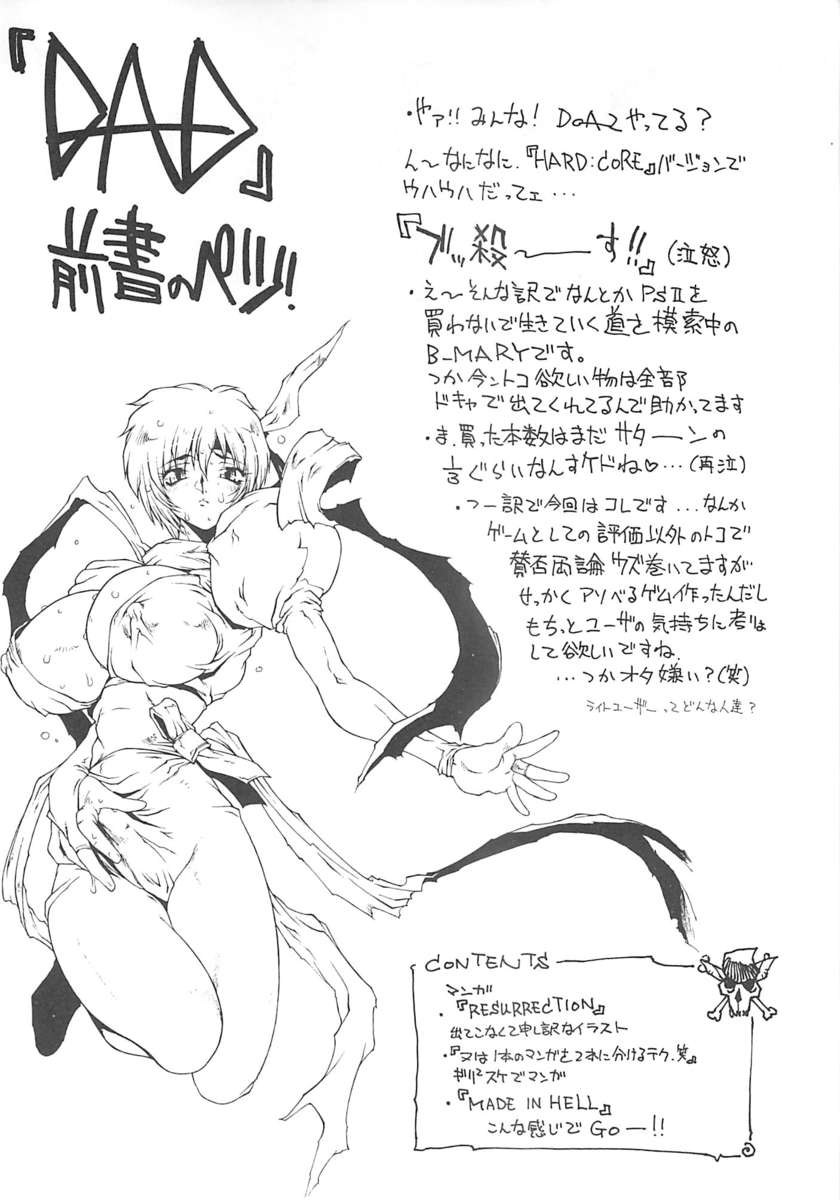 『DAD』
前書のページ!
・やァ!!みんな! DoA2やってる?
ん〜なになに.『HARD:CORE』バージョンで
ウハウハだってェ…
『ブッ殺〜――す!!』(泣怒)
・え〜そんな訳でなんとかPSⅡを
買わないで生きていく道を模索中の
B_MARYです。
つか今ントコ欲しい物は全部
ドキャで出てくれてるんで助かってます
・ま、買った本数はまだサターーンの
1/3ぐらいなんすケドね♡…(再泣)
・つー訳で今回はコレです…なんか
ゲームとしての評価以外のトコで
賛否両論ウズ巻いてますが
せっかくアソべるゲム作ったんだし
もちっとユーザの気持ちに考慮
して欲しいですね.
…つかオタ嫌い?(笑)
ライトユーザーってどんな人達?
CONTENTS
マンガ
・『RESURRECTION』
出てこなくて申し訳なイラスト
・『又は1本のマンガを2本に分けるテク.笑』
ギリ²スケでマンガ
・『MADE IN HELL』
こんな感じで GO―!!